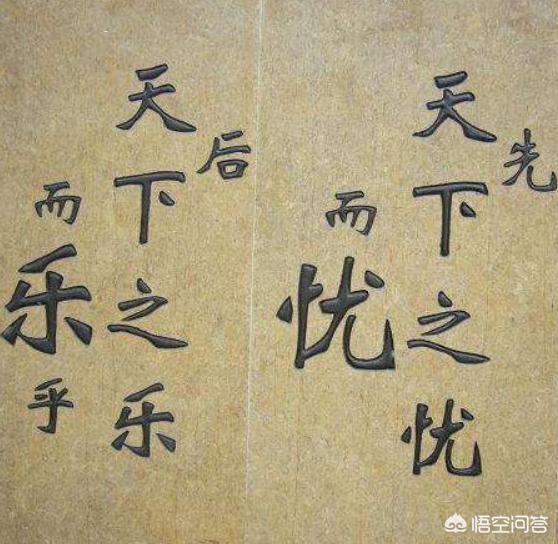 先
天下之忧
而
忧
后
天下之乐
而
乐
乎
悟空问答